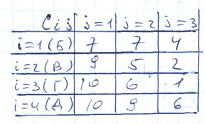 Cij j=1 j=2 j=3
i=1(Б) 7 7 4
i=2(В) 9 5 2
i=3(Г) 10 6 1
i=4(Д) 10 9 6